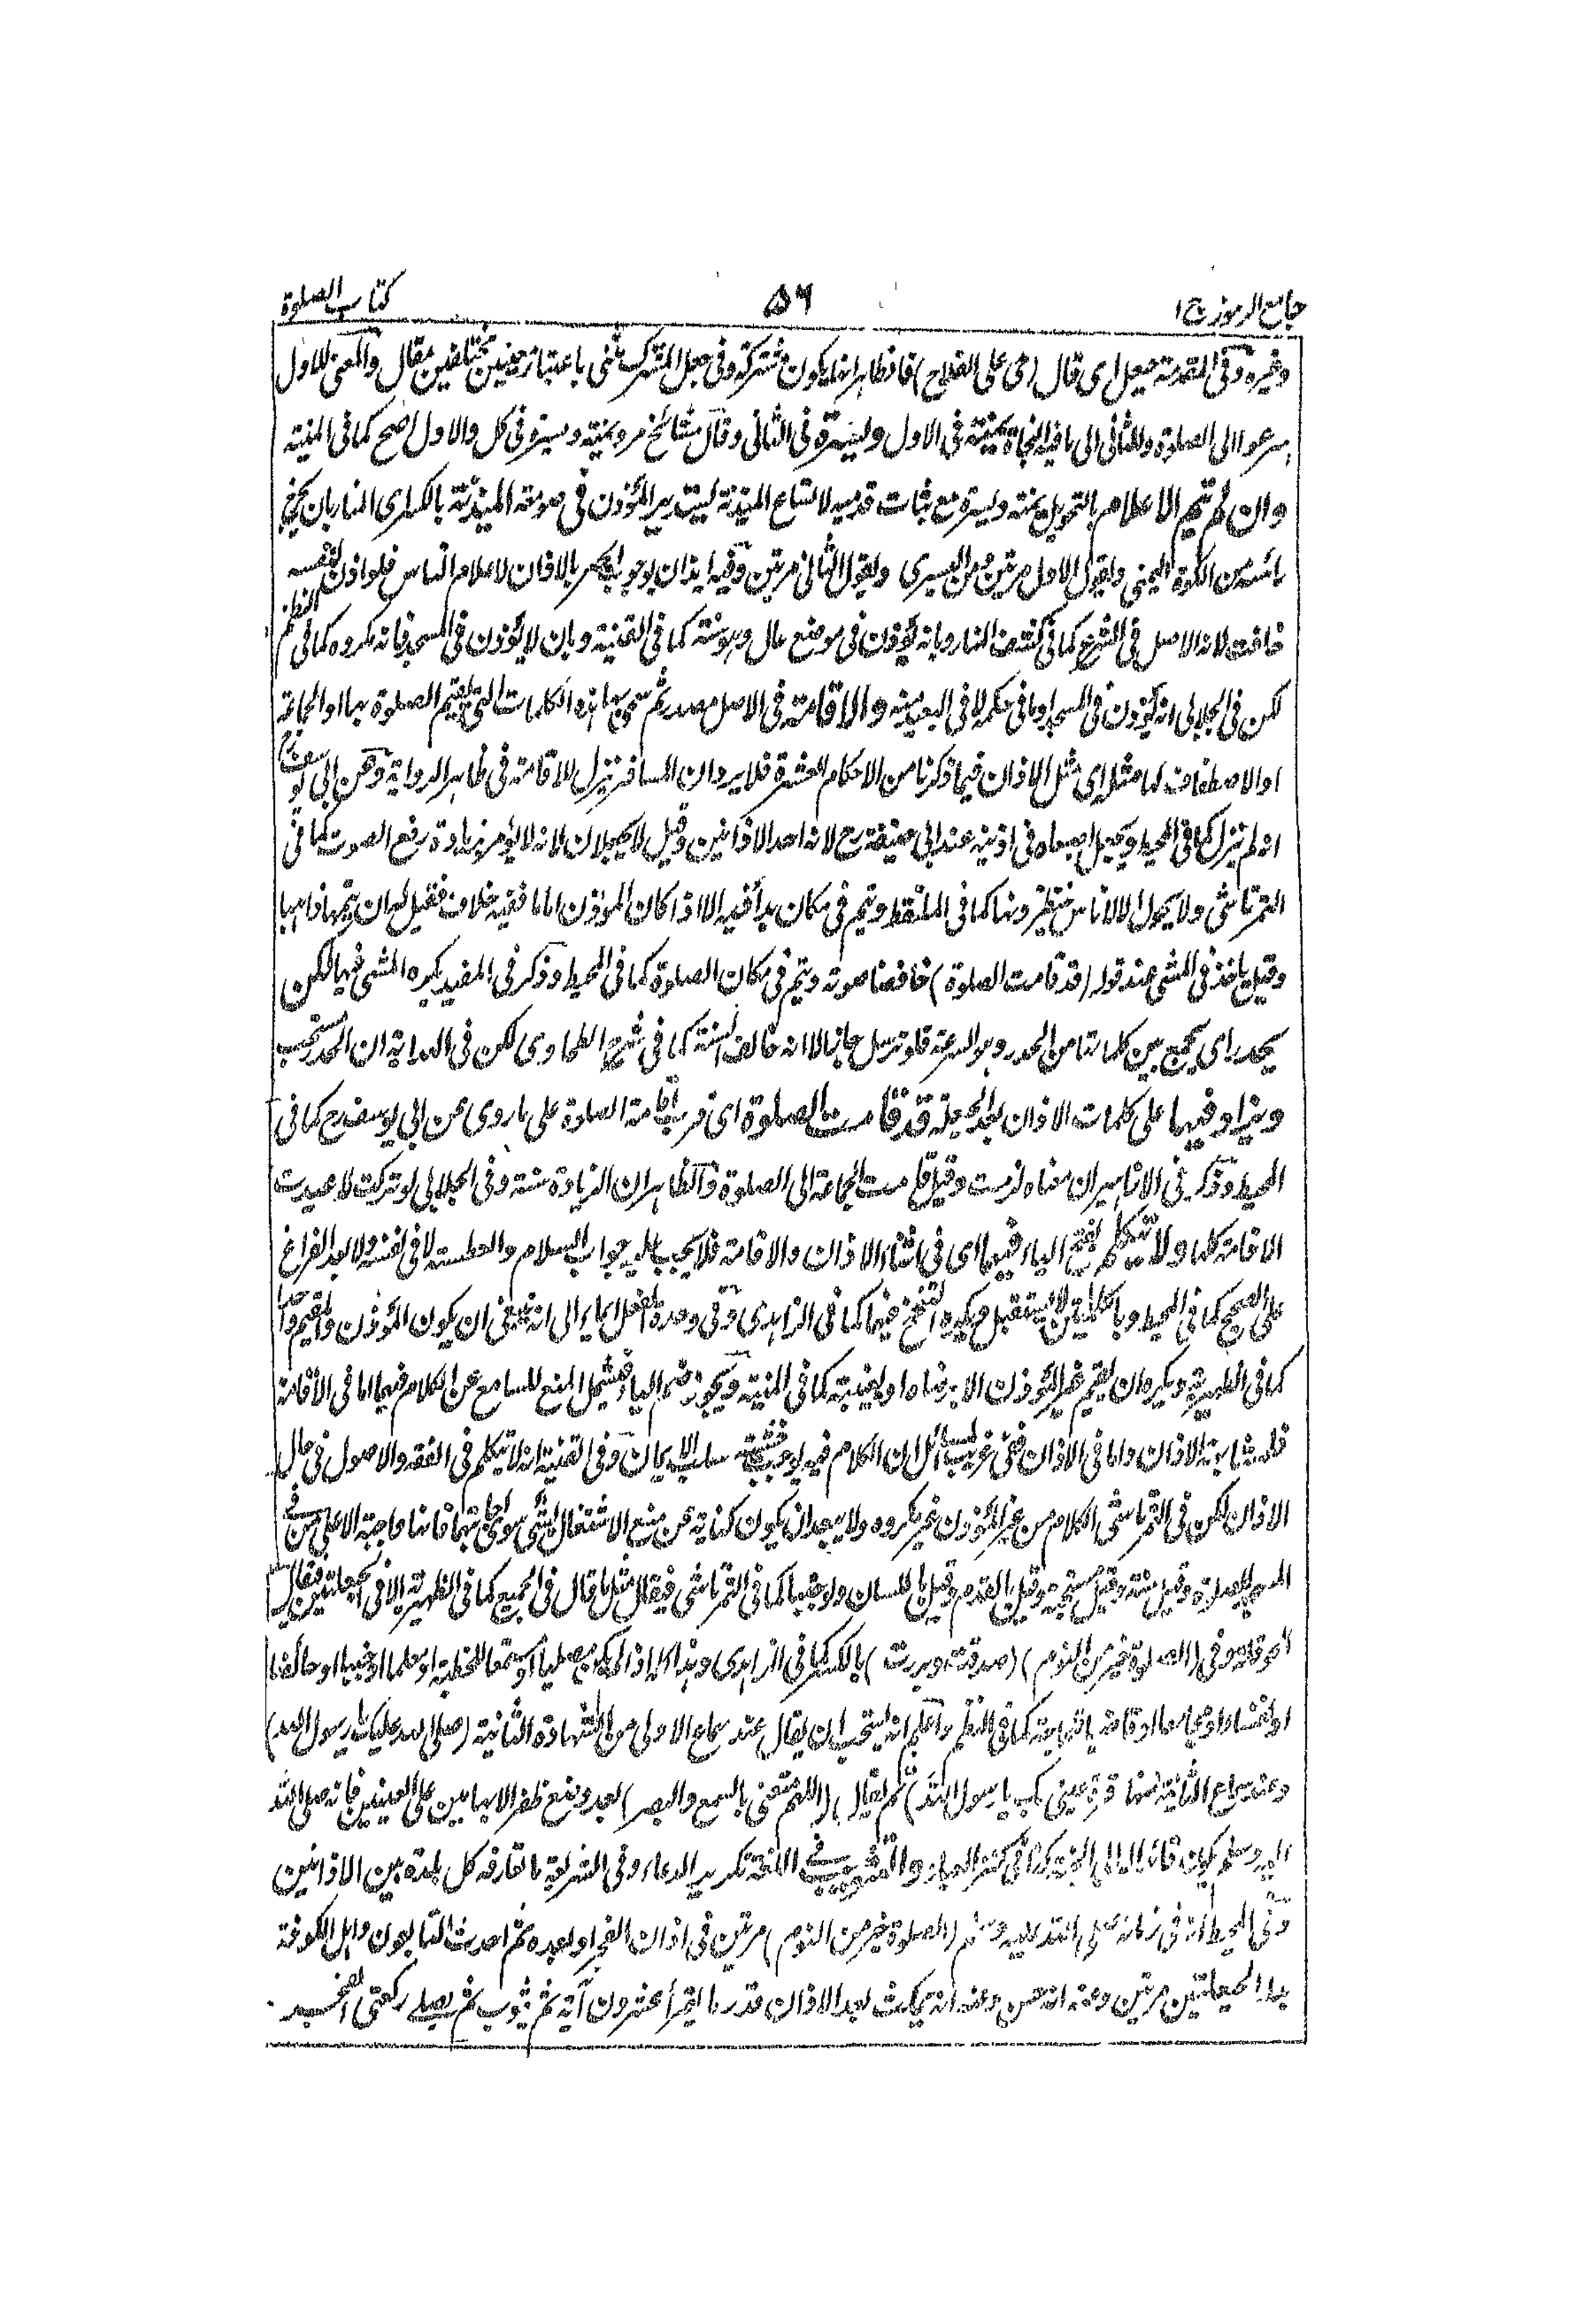 جامع الرموز ج ١ ٥٦ كتاب الصلوة
وغيره وفى المقدمة حيعل اى قال (حى على الفلاح) فالظاهر انها يكون مشتركة وفى جعل المشترك مثنى باعتبار معنيين مختلفين مقال والمعنى للاول
اسرعوا الى الصلوة وللثانى الى ما فيه النجاة يمنة فى الاول ويسرة فى الثانى وقال مشائخ مرو يمنة ويسرة فى كل والاول اصح كما فى المنية
وان لم يتم الاعلام بالتحويل يمنة ويسرة مع ثبات قدميه لاتساع المئذنة يستدير المؤذن فى صومعة المئذنة بالكسر اى المنار بان يخرج
رأسه من الكوة اليمنى ويقول الاول مرتين ثم من اليسرى ويقول الثانى مرتين وفيه ايذان بوجوب الجهر بالاذان لاعلام الناس فلو اذن لنفسه
خافت لانه الاصل فى الشرع كما فى كشف المنار وبانه يؤذن فى موضع عال وهو سنة كما فى القنية وبان لا يؤذن فى المسجد فانه مكروه كما فى النظم
لكن فى الجلابى انه يؤذن فى المسجد او ما فى حكمه لا فى البعيد منه والاقامة فى الاصل مصدر ثم سمى بها هذه الكلمات التى يقيم الصلوة بها او الجماعة
او الاصطفاف لها مثله اى مثل الاذان فيما ذكرنا من الاحكام العشرة فلا يرد ان المسافر ينزل للاقامة فى ظاهر الرواية وعن ابى يوسف رح
انه لم ينزل كما فى المحيط ويجعل اصبعاه فى اذنيه عند ابى حنيفة رح لانه احد الاذانين وقيل لا يجعلان لانه لا يؤمر بزيادة رفع الصوت كما فى
التمرتاشى ولا يحول الا لاناس ينتظرونها كما فى الملتقط ويتم فى مكان بدأ فيه الا اذا كان المؤذن اماما ففيه خلاف فقيل له ان يتمها ذاهبا
وقيل ياخذ فى المشى عند قوله (قد قامت الصلوة) خافضا صوته ويتم فى مكان الصلوة كما فى المحيط وذكر فى المفيد يكره المشى فيها لكن
يحدر اى يجمع بين كلماتها من الحدر وهو السرعة فلو ترسل جاز الا انه خالف السنة كما فى شرح الطحاوى لكن فى الهداية ان الحدر مستحب
ويزاد فيها على كلمات الاذان بعد الحيعلة قد قامت الصلوة اى قرب اقامة الصلوة على ما روى عن ابى يوسف رح كما فى
المحيط وذكر فى الاناسير ان معناه لزمت وقيل قامت الجماعة الى الصلوة والظاهر ان الزيادة سنة وفى الجلابى لو تركت لا عيدت
الاقامة كلها ولا يتكلم بفتح الياء فيهما اى فى اثناء الاذان والاقامة فلا يجب عليه جواب السلام والعطسة لا فى نفسه ولا بعد الفراغ
على الصحيح كما فى المحيط وبالكلمتين لا يستقبل ويكره التنحنح فيهما كما فى الزاهدى وفى وحدة الفعل ايماء الى انه ينبغى ان يكون المؤذن والمقيم واحدا
كما فى الظهيرية ويكره ان يقيم غير المؤذن الا برضاه او لغيبته كما فى المنية ويجوز ضم الياء فيشمل المنع للسامع عن الكلام فيهما اما فى الاقامة
فلمشابهة الاذان واما فى الاذان ففى غريب المسائل ان الكلام فيه يوجب خشية سلب الايمان وفى القنية انه لا يتكلم فى الفقه والاصول فى حال
الاذان لكن فى التمرتاشى الكلام من غير المؤذن غير مكروه ولا يبعد ان يكون كناية عن منع الاشتغال بشئ سوى اجابتهما فانها واجبة الا على من فى
المسجد للصلوة وقيل سنة وقيل مستحبة وقيل بالقدم وقيل باللسان ولو جنبا كما فى التمرتاشى فيقال مثل ما قال فى الجميع كما فى الظهيرية الا فى الحيعلتين فيقال
الحوقلة وفى (الصلوة خير من النوم) (صدقت وبررت) بالكسر كما فى الزاهدى وهذا كله اذا لم يكن مصليا او مستمعا للخطبة او معلما او جنبا او حائضا
او نفساء او مجامعا او قائمة بالتباعة كما فى النظم واعلم انه يستحب ان يقال عند سماع الاولى من الشهادة الثانية (صلى الله عليك يا رسول الله)
وعند سماع الثانية منها قرة عينى بك يا رسول الله) ثم يقال (اللهم متعنى بالسمع والبصر) بعد وضع ظفر الابهامين على العينين فانه صلى الله
عليه وسلم يكون قائدا له الى الجنة كذا فى كنز العباد والتثويب فى اللغة تكرير الدعاء وفى الشريعة ما تعارفه كل بلدة بين الاذانين
وفى المحيط انه فى زمانه صلى الله عليه وسلم (الصلوة خير من النوم) مرتين فى اذان الفجر او بعده ثم احدث التابعون واهل الكوفة
بدله الحيعلتين مرتين وعنه انه حسن وعنه انه يمكث بعد الاذان قدر ما يقرأ عشرون آية ثم يثوب ثم يصلى ركعتى الفجر